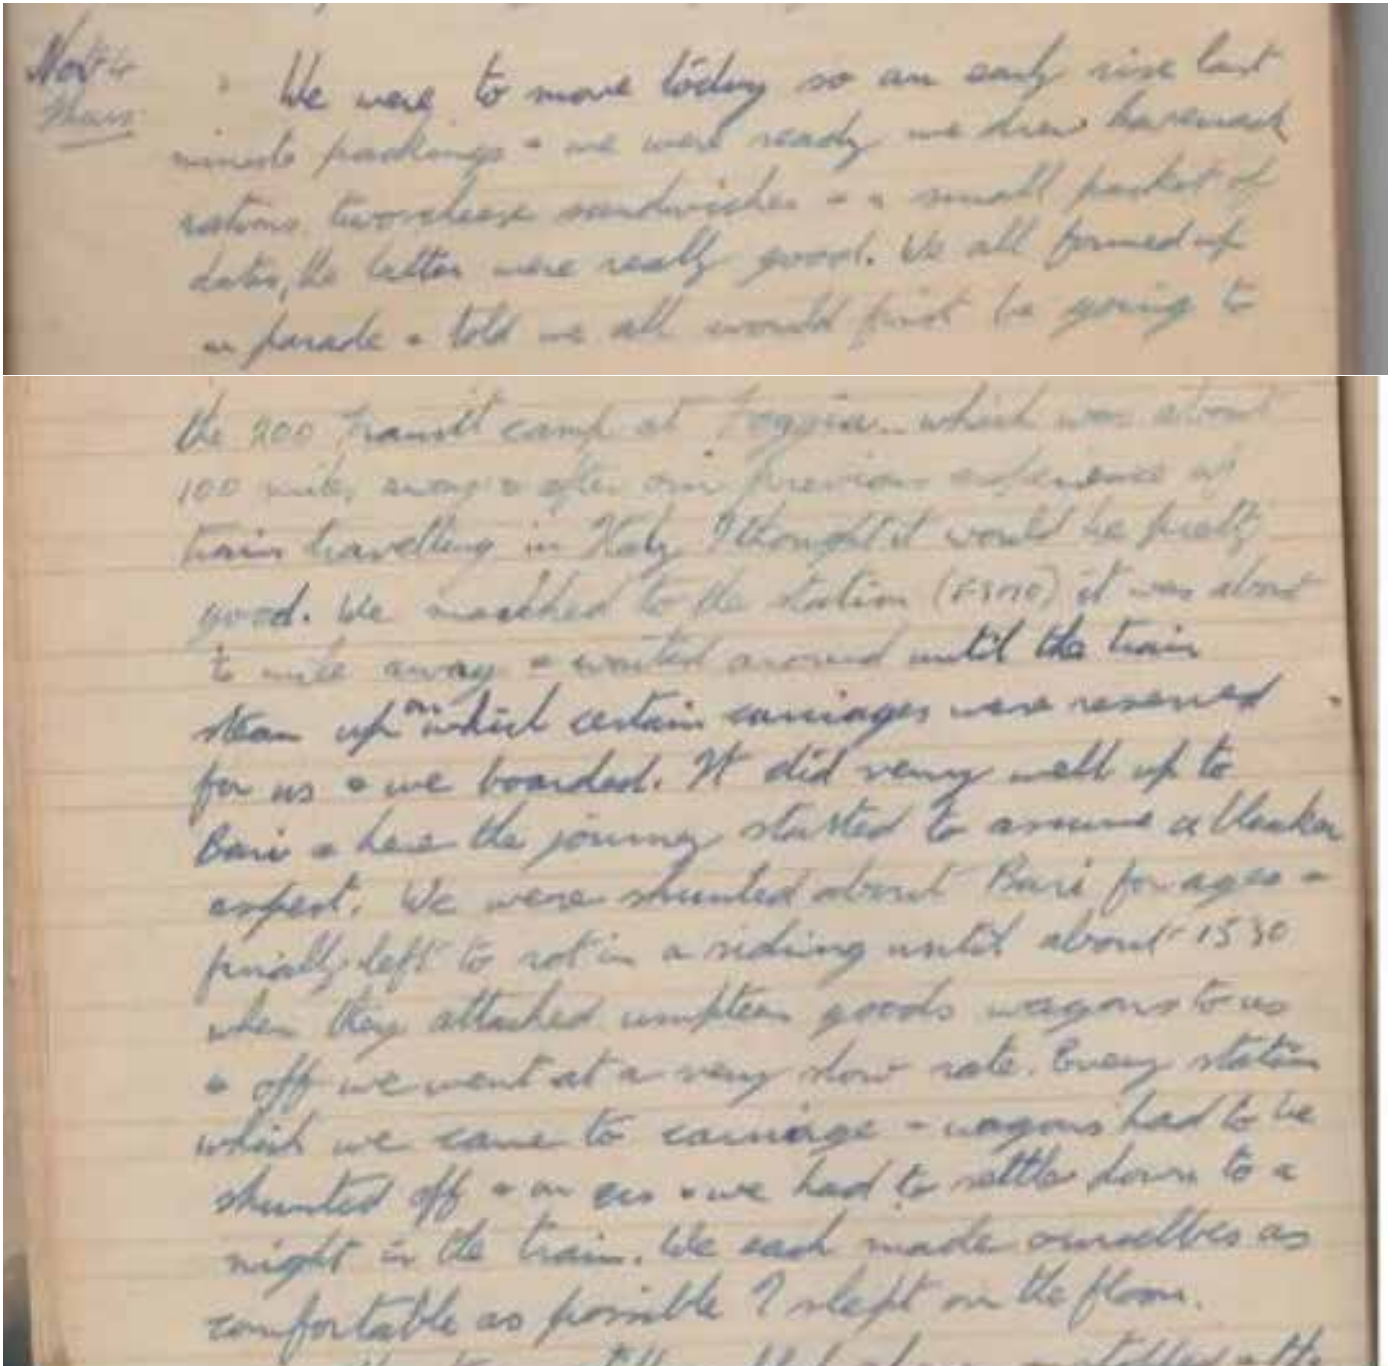 Nov 4
Thurs
We were to move today so an early rise last
minute packings + we were ready we drew haversack
rations two cheese sandwiches + a small packet of
dates, the latter were really good. We all formed up
on parade + told we all would first be going to
the 200 Transit camp at Foggia which was about
100 miles away + after our previous experience of
train travelling in Italy I thought it would be pretty
good. We marched to the station it was about
mile away + waited around until the train
steam up on which certain carriages were reserved
for us + we boarded. It did very well up to
Bari + here the journey started to assume a bleaker
aspect. We were shunted about Bari for ages +
finially left to rot in a sidiing until about 1530
when they attached umpteen goods wagons to us
+ off we went at a very slow rate. Every station
which we came to carriage + wagons had to be
shunted off + on us + we had to settle down to a
night in the train. We each made ourselves as
comfortable as possible I slept on the floor.